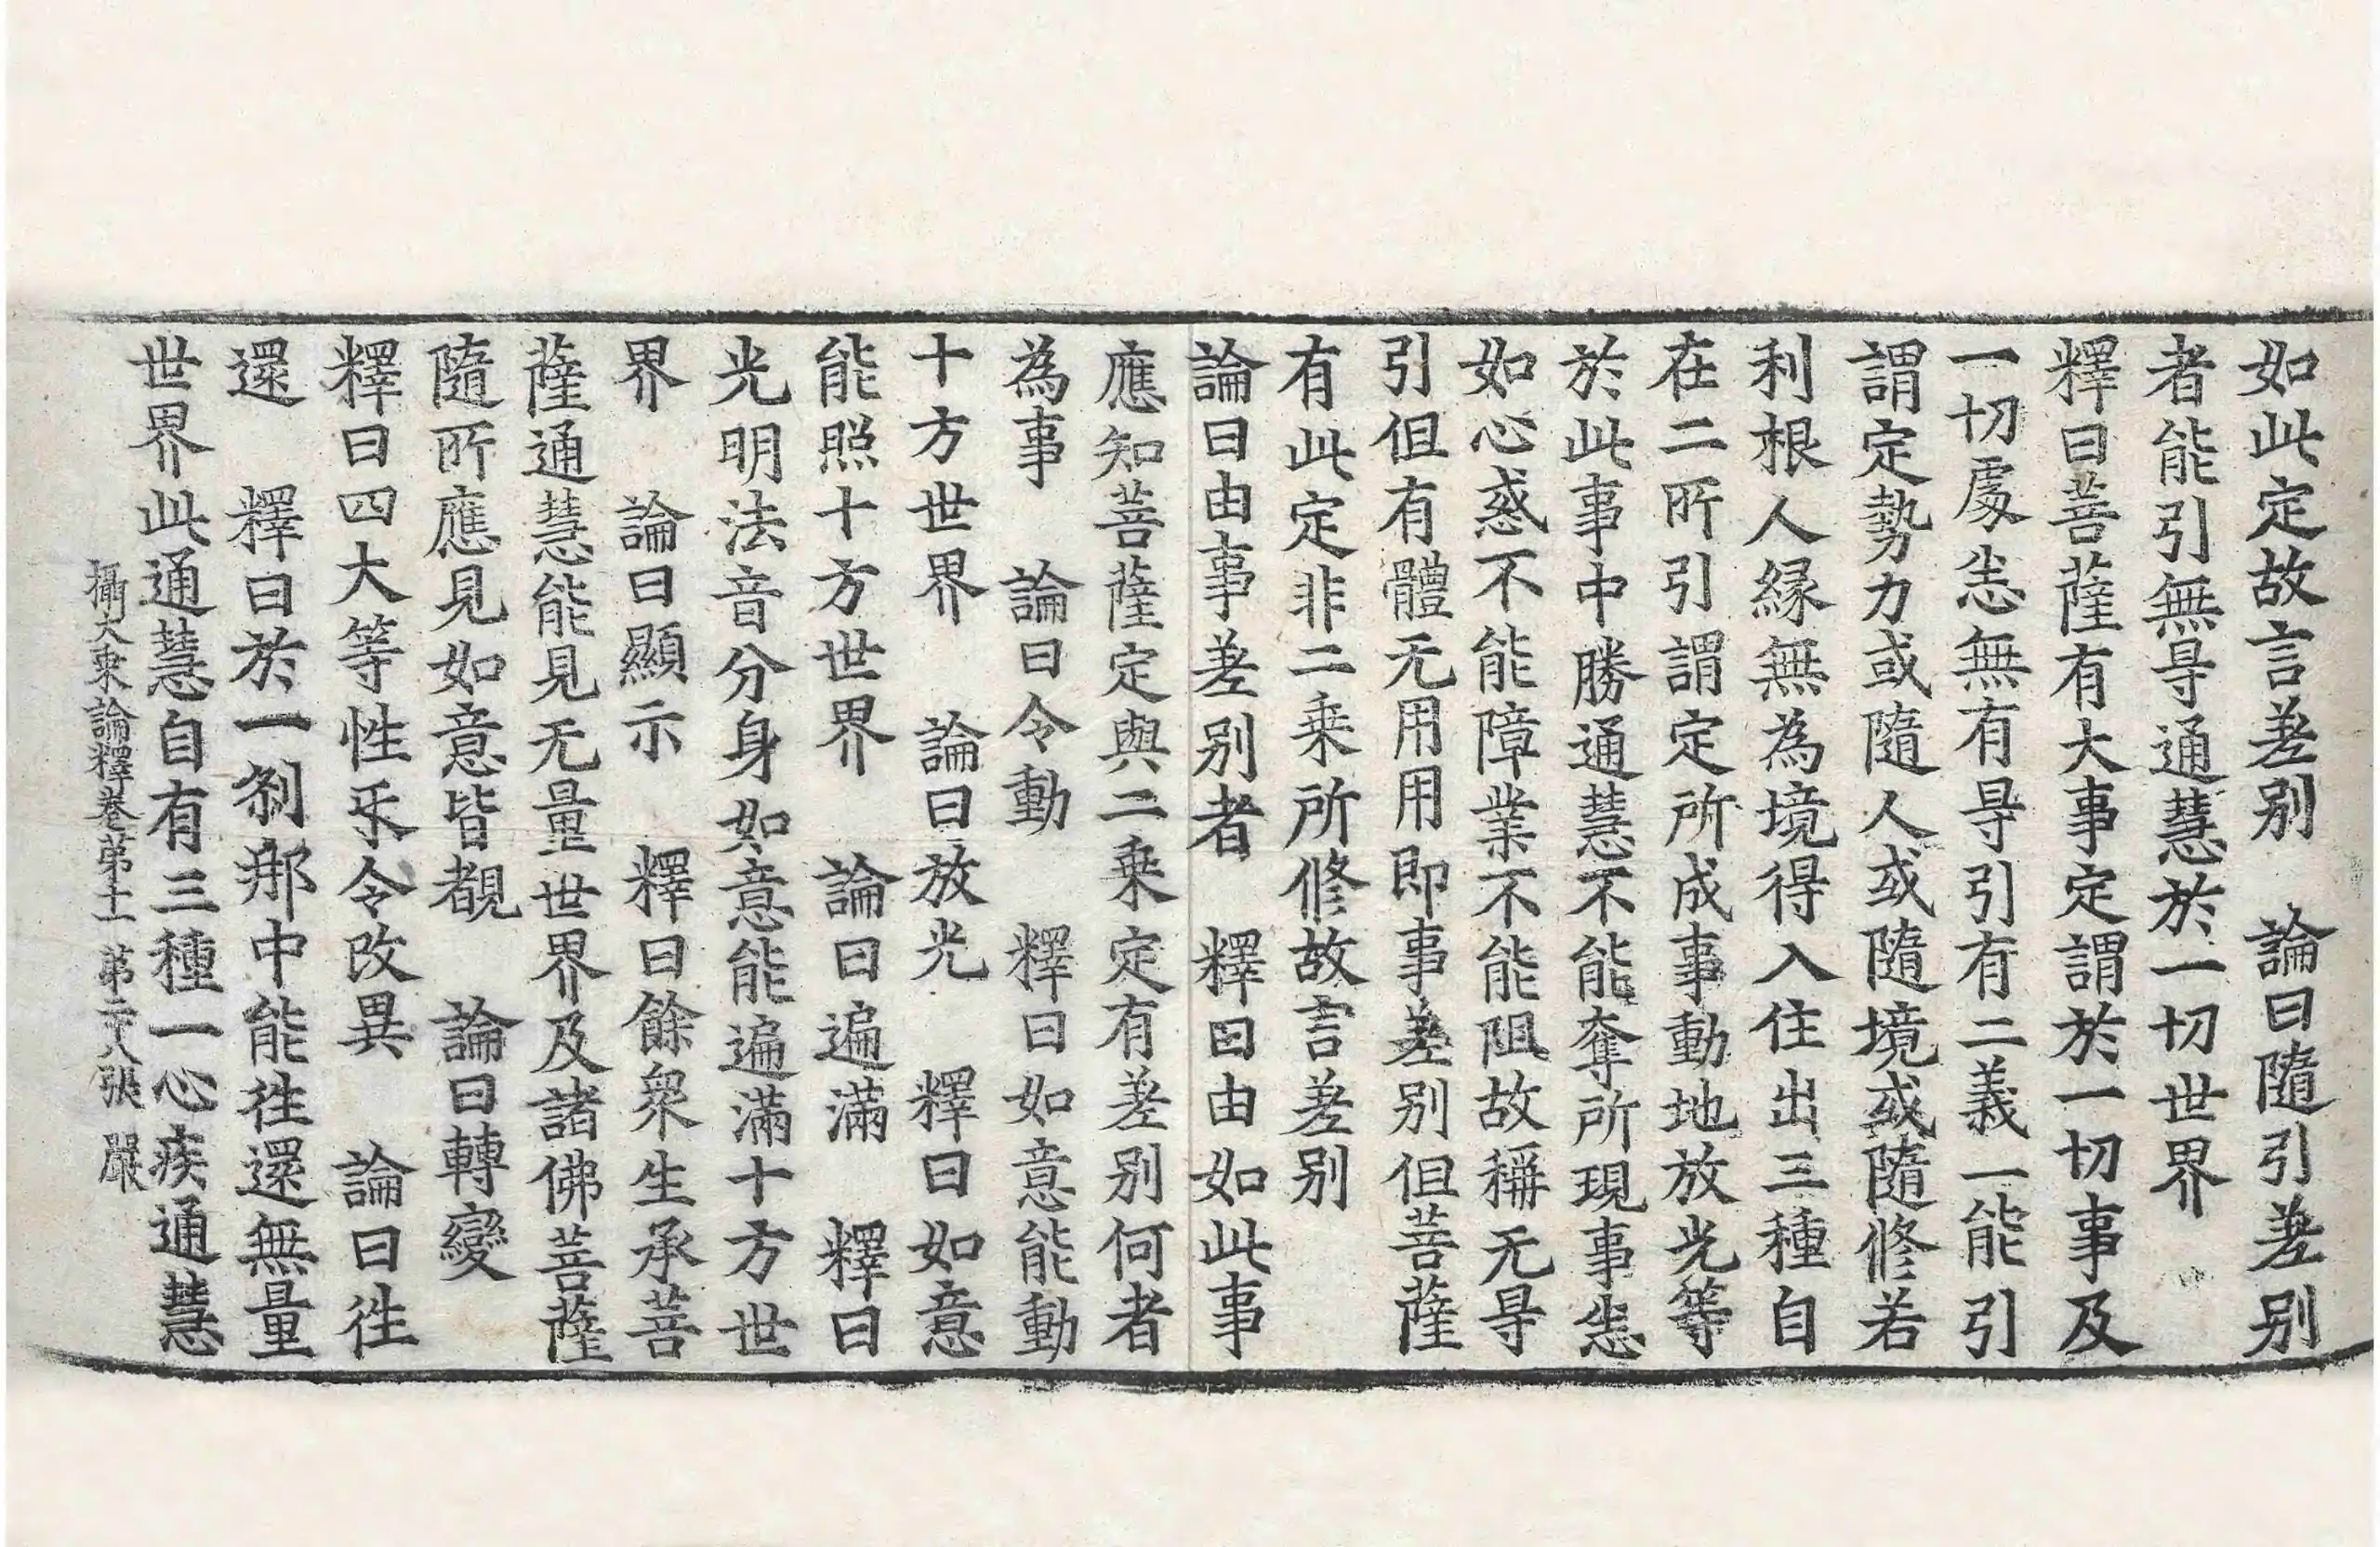 如此定故言差别　論曰隨引差别
者能引無㝵通慧於一切世界
釋曰菩薩有大事定謂於一切事及
一切處恙無有㝵引有二義一能引
謂定勢力或隨人或隨境或隨修若
利根人緣無為境得入住出三種自
在二所引謂定所成事動地放光等
於此事中勝通慧不能奪所現事恙
如心惑不能障業不能阻故稱无㝵
引但有體无用用即事差别但菩薩
有此定非二乗所修故言差别
論曰由事差别者　釋曰由如此事
應知菩薩定與二乗定有差别何者
為事　論曰令動　釋曰如意能動
十方世界　論曰放光　釋曰如意
能照十方世界　論曰遍滿　釋曰
光明法音分身如意能遍滿十方世
界　論曰顯示　釋曰餘衆生承菩
薩通慧能見无量世界及諸佛菩薩
隨所應見如意皆覩　論曰轉變
釋曰四大等性乐令改異　論曰往
還　釋曰於一剎那中能往還無量
世界此通慧自有三種一心疾通慧
攝大乘論釋卷苐十一　苐二十八張　嚴